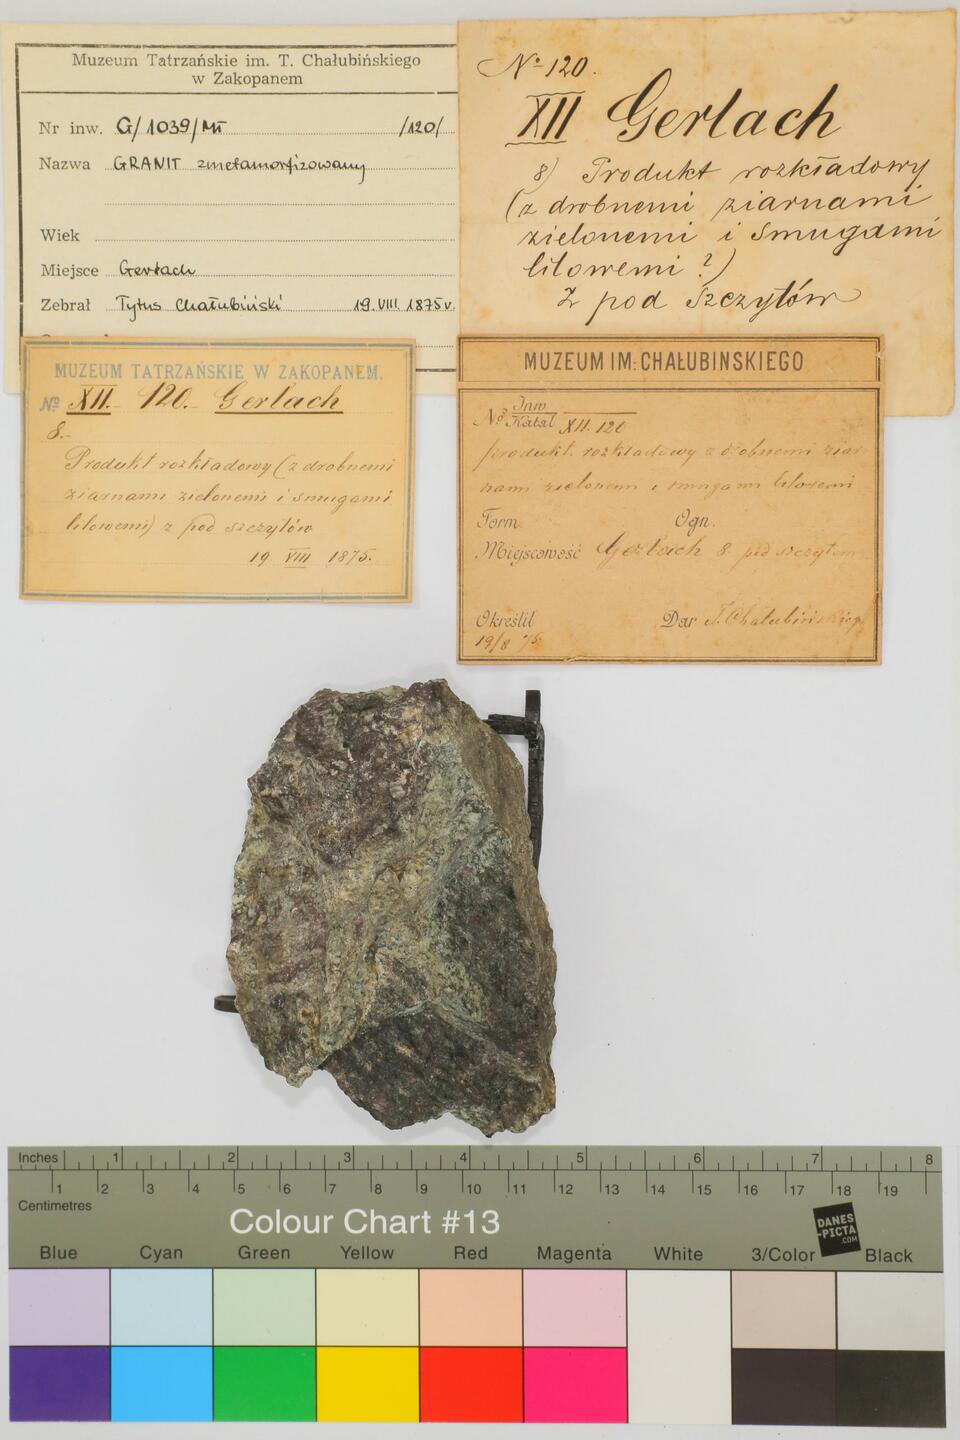 Muzeum Tatrzańskie im. T. Chałubińskiego
w Zakopanem
Nr inw. G/1039/MT /120/
Nazwa GRANIT zmetamorfizowany
Wiek
Miejsce Gerlach
Zebrał Tytus Chałubiński 19.VIII.1875r.
No 120.
XII Gerlach
8) Produkt rozkładowy
(z drobnemi ziarnami
zielonemi i smugami
lilowemi ?)
Z pod Szczytów
MUZEUM TATRZAŃSKIE W ZAKOPANEM.
No XII. 120. Gerlach
8.
Produkt rozkładowy (z drobnemi
ziarnami zielonemi i smugami
lilowemi) z pod szczytów
19 VIII 1875.
MUZEUM IM: CHAŁUBINSKIEGO
No Inw
Katal XII. 120
produkt rozkładowy z drobnemi ziar
nami zielonemi i smugami lilowemi
Form. Ogn.
Miejscowość Gerlach 8. pod szczytem
Określił Dar T. Chałubińskiego
19/8 75
Inches 1 2 3 4 5 6 7 8
1 2 3 4 5 6 7 8 9 10 11 12 13 14 15 16 17 18 19
Centimetres
Colour Chart #13
DANES
-PICTA
.COM
Blue Cyan Green Yellow Red Magenta White 3/Color Black